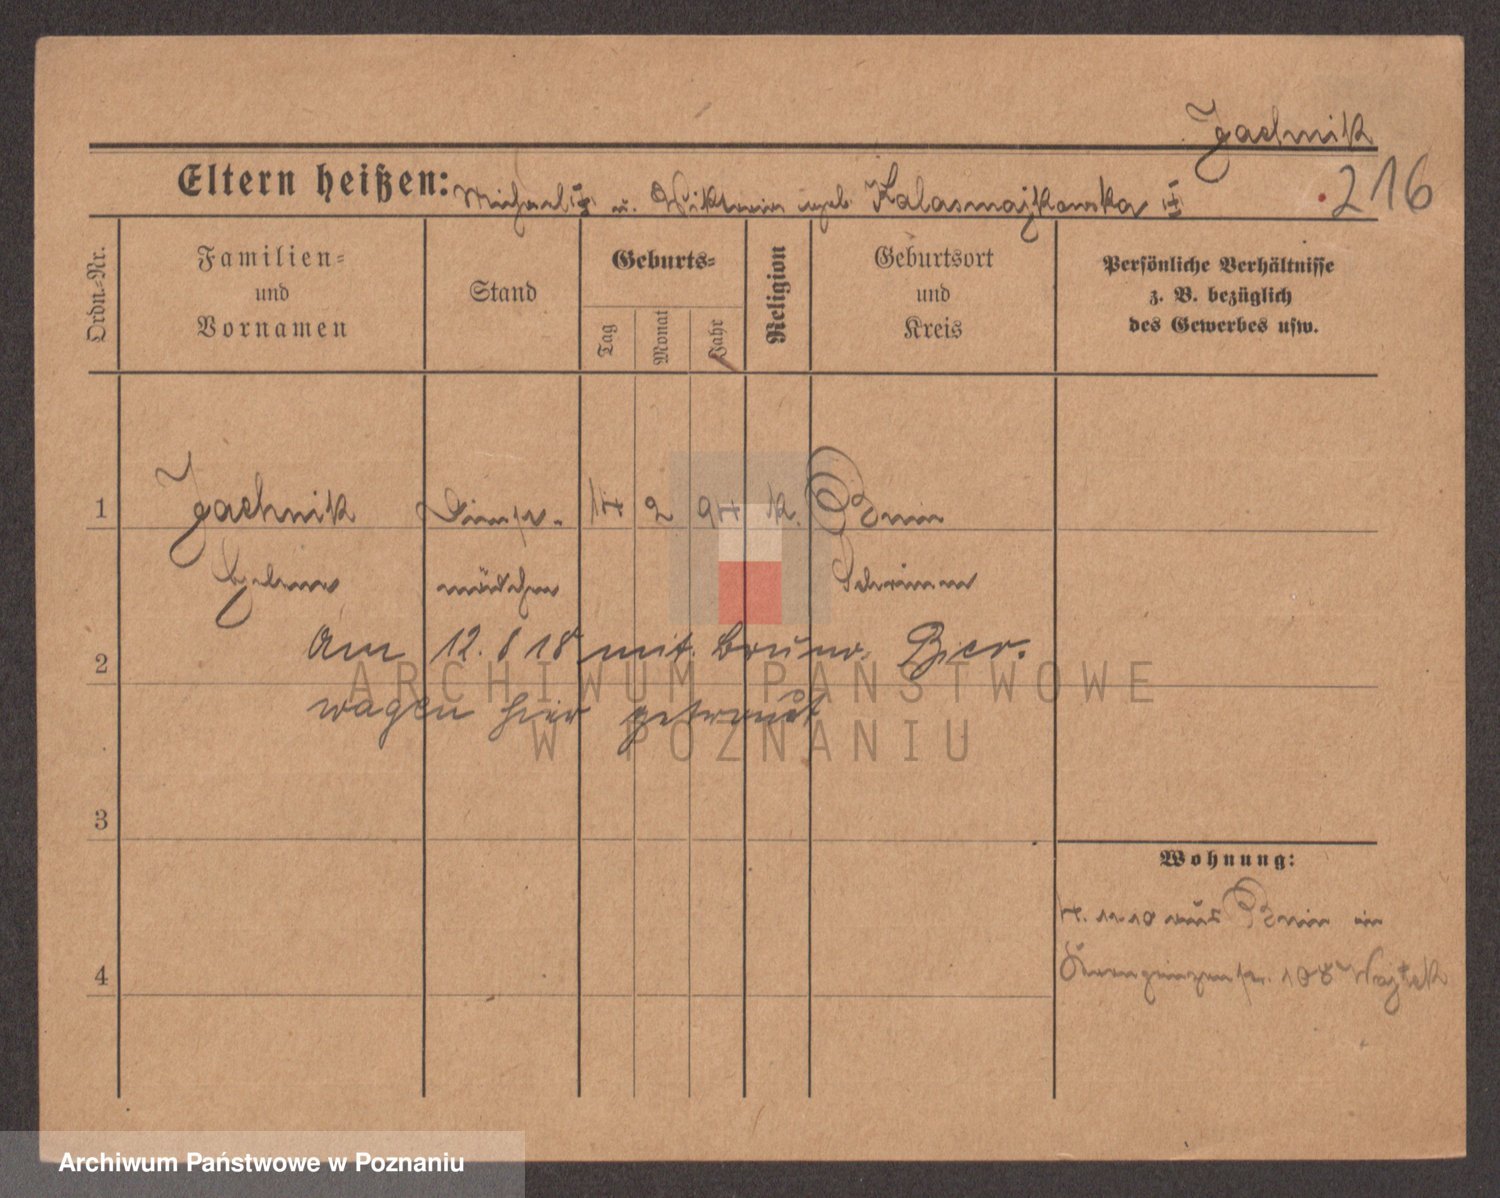 Jachnik
Eltern heißen: Michael u. Wiktoria geb. Kalasmajkowska
216
Ordn.-Nr.
Familien-
und
Vornamen
Stand
Geburts-
Tag
Monat
Jahr
Religion
Geburtsort
und
Kreis
Persönliche Verhältnisse
z. B. bezüglich
des Gewerbes usw.
1 Jachnik Dienst- 17 2 97 k. Bnin
Helene mädchen Schrimm
2 Am 12. 8 18 mit Bruno Bier-
wagen hier getraut
3
4
Wohnung:
7. 11 10 aus Bnin in
Kronprinzenstr. 108 Wojtek
ARCHIWUM PAŃSTWOWE
W POZNANIU
Archiwum Państwowe w Poznaniu